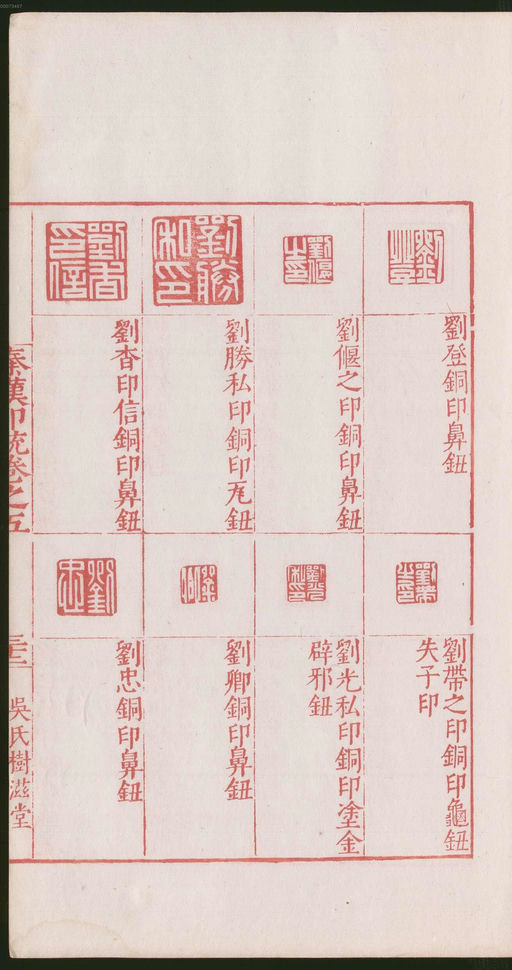 劉登銅印鼻鈕
劉偃之印銅印鼻鈕
劉勝私印銅印瓦鈕
劉㫗印信銅印鼻鈕
劉帶之印銅印龜鈕
失子印
劉光私印銅印塗金
辟邪鈕
劉卿銅印鼻鈕
劉忠銅印鼻鈕
秦漢印統卷之五
吳氏樹滋堂